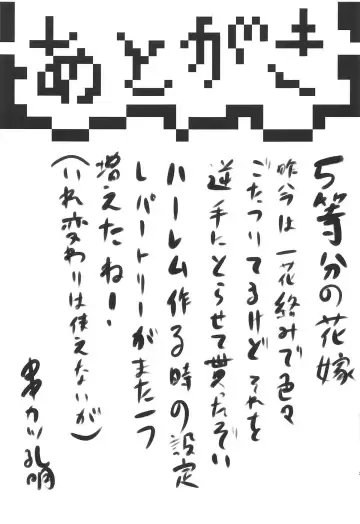 あとがき
5等分の花嫁
昨今は一花絡みで色々
ごたついてるけど それを
逆手にとらせて貰ったぞい
ハーレム作る時の設定
レパートリーがまた一つ
増えたね！
（いれ変わりは使えないが）
串カツ孔明